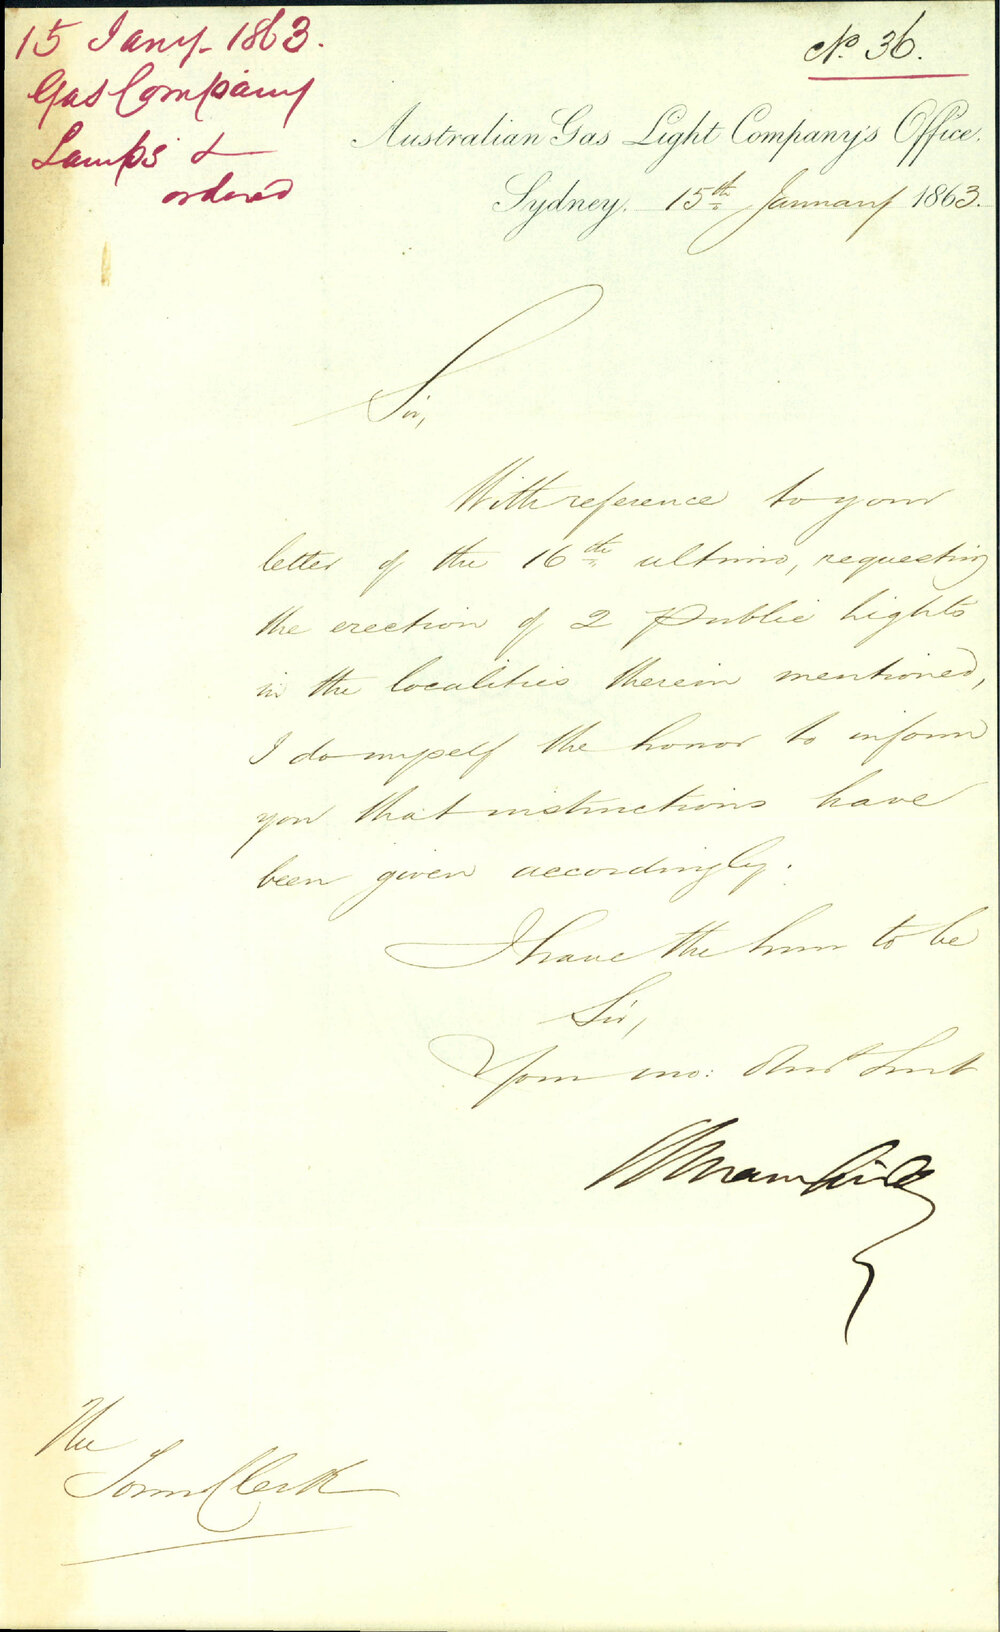 15 Jany. 1863.
Gas Company
Lamps &
ordered
No. 36.
Australian Gas Light Company's Office.
Sydney, 15th January 1863.
Sir,
With reference to your
letter of the 16th ultimo, requesting
the erection of 2 Public Lights
in the localities therein mentioned,
I do myself the honor to inform
you that instructions have
been given accordingly.
I have the honor to be
Sir,
Your mo: Obdt Servt
The
Town Clerk